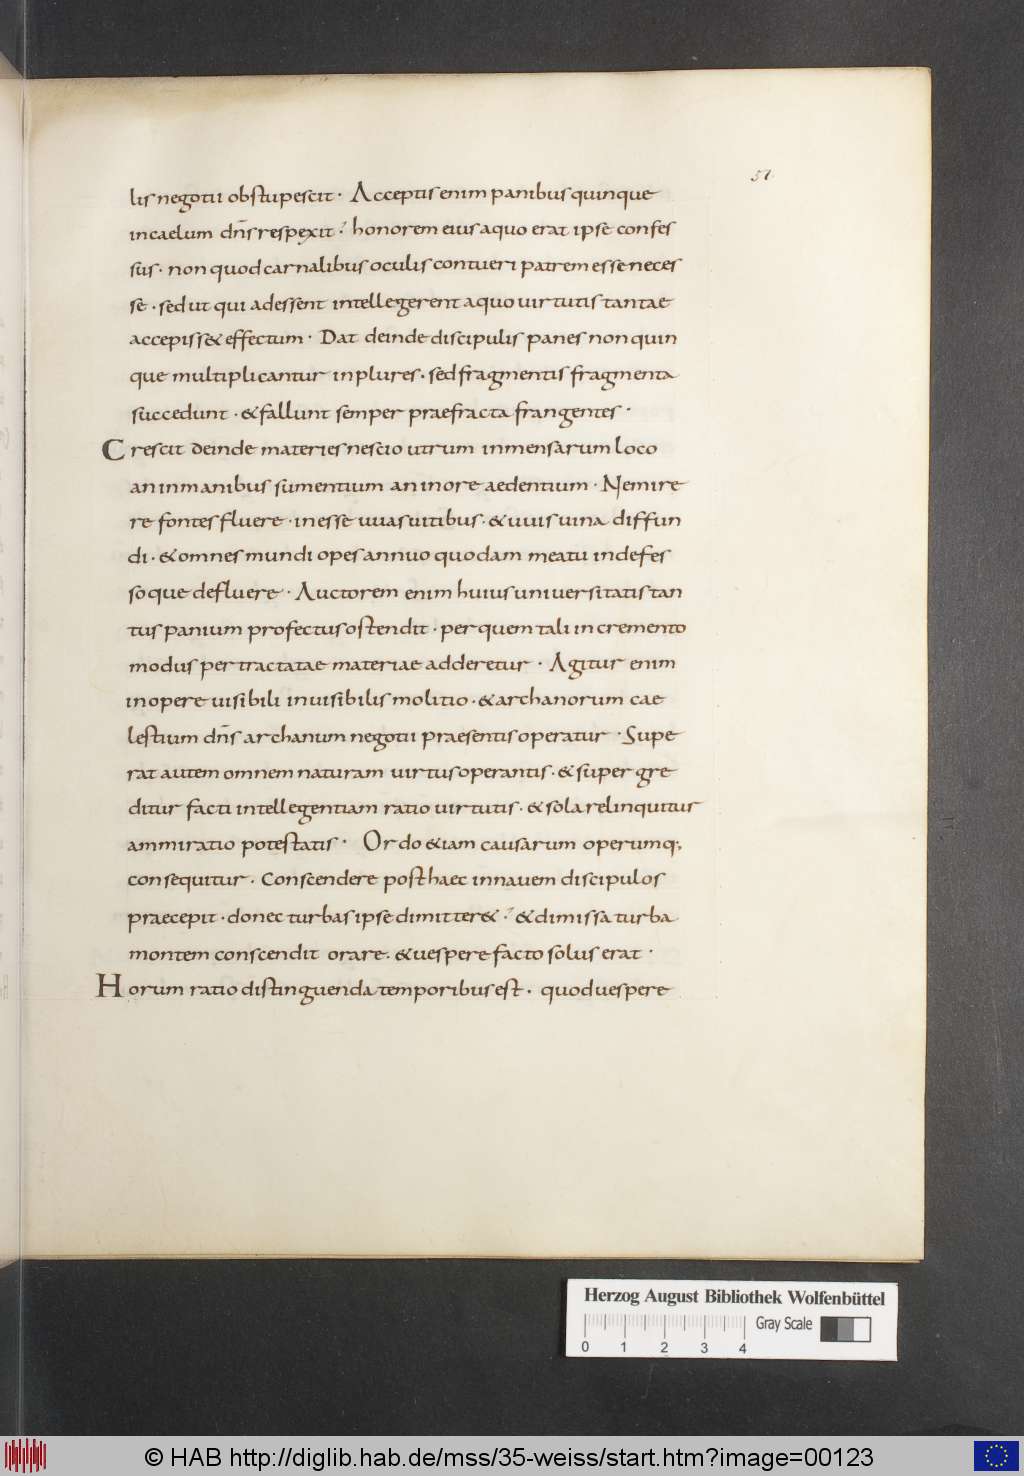 51
lis negotii obstupescit · Acceptis enim panibus quinque
in caelum dn̄s respexit · honorem eius a quo erat ipse confes
sus · non quod carnalibus oculis contueri patrem esse neces
se · sed ut qui adessent intellegerent a quo virtutis tantae
accepiss& effectum · Dat deinde discipulis panes non quin
que multiplicantur in plures · sed fragmentis fragmenta
succedunt · & fallunt semper praefracta frangentes ·
Crescit deinde materies nescio utrum in mensarum loco
an in manibus sumentium an in ore aedentium · Nemire
re fontes fluere · inesse uuas uitibus · & uuis uina diffun
di · & omnes mundi opes annuo quodam meatu indefes
soque defluere · Auctorem enim huius uniuersitatis tan
tus panium profectus ostendit · per quem tali incremento
modus pertractatae materiae adderetur · Agitur enim
in opere uisibili inuisibilis molitio · & archanorum cae
lestium dn̄s archanum negotii praesentis operatur · Supe
rat autem omnem naturam uirtus operantis · & supergre
ditur facti intellegentiam ratio uirtutis · & sola relinquitur
ammiratio potestatis · Ordo &iam causarum operumq;
consequitur · Conscendere post haec in nauem discipulos
praecepit · donec turbas ipse dimitter& · & dimissa turba
montem conscendit orare · & uespere facto solus erat ·
Horum ratio distinguenda temporibus est · quod uespere
Herzog August Bibliothek Wolfenbüttel
Gray Scale
0 1 2 3 4
© HAB http://diglib.hab.de/mss/35-weiss/start.htm?image=00123